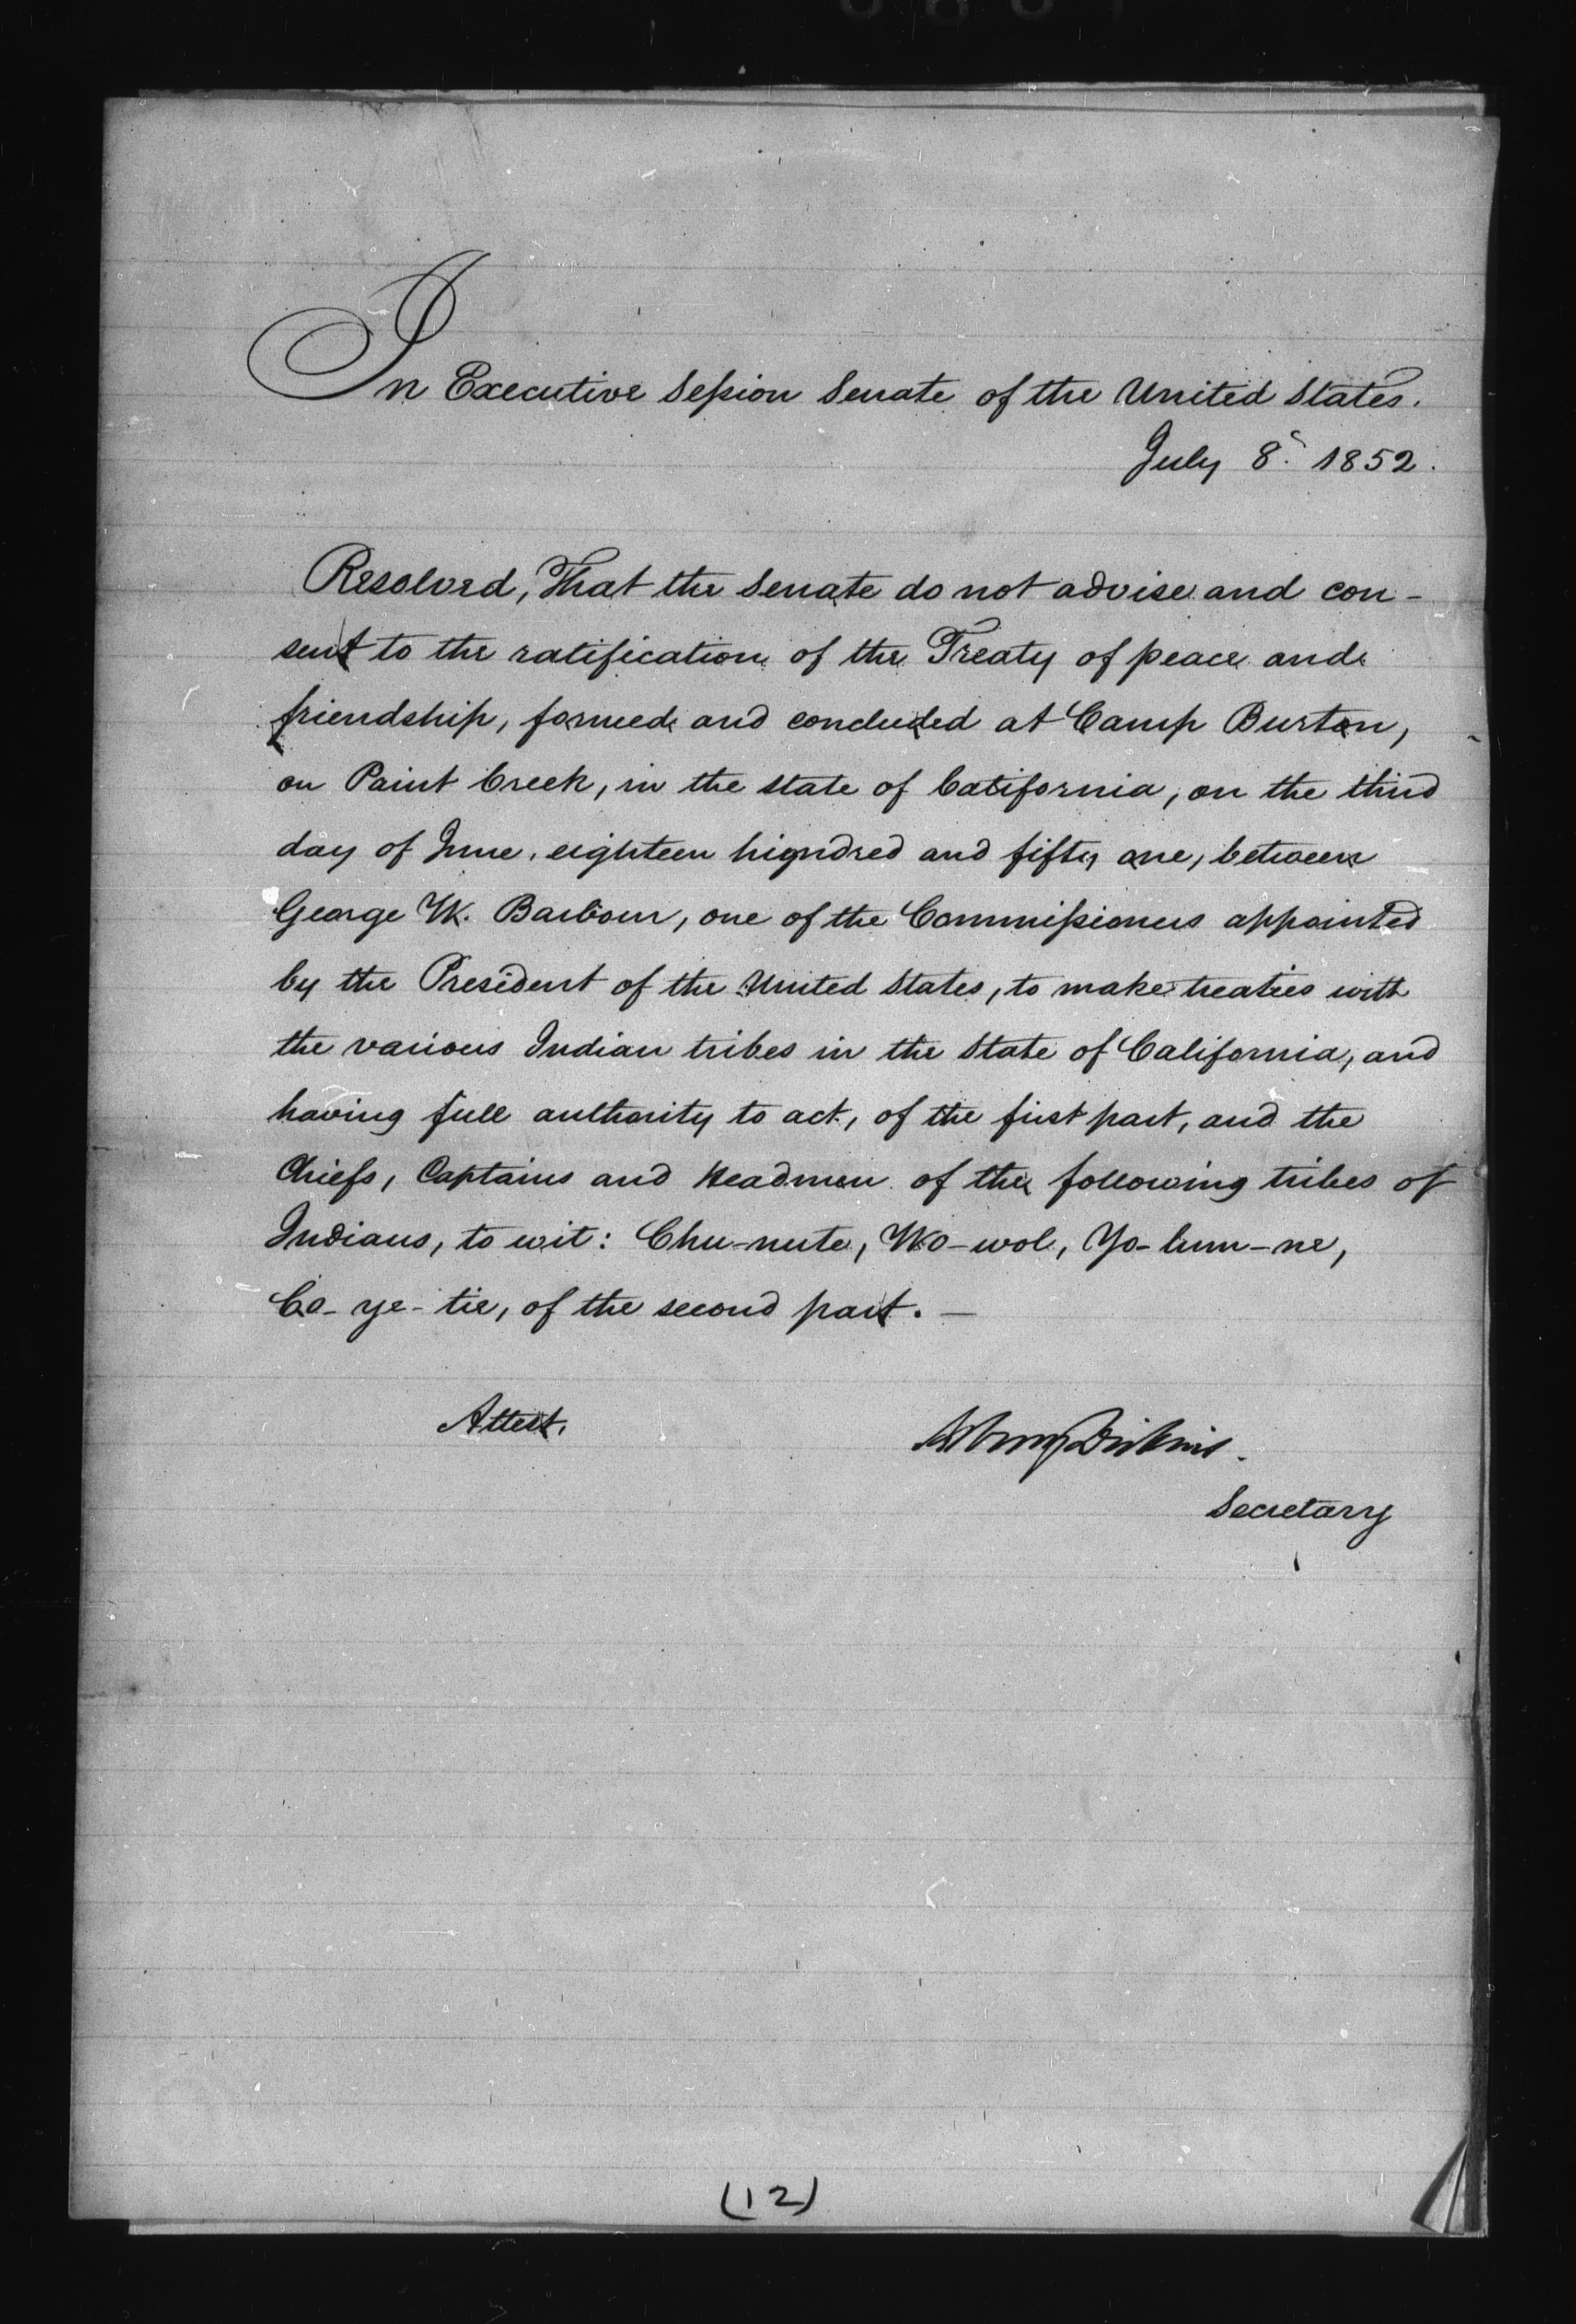 In Executive Session Senate of the United States.
July 8. 1852.
Resolved, That the Senate do not advise and con-
sent to the ratification of the Treaty of peace and
friendship, formed and concluded at Camp Burton,
on Paint Creek, in the State of California, on the third
day of June, eighteen hundred and fifty one, between
George W. Barbour, one of the Commissioners appointed
by the President of the United States, to make treaties with
the various Indian tribes in the State of California, and
having full authority to act, of the first part, and the
Chiefs, Captains and Headmen of the following tribes of
Indians, to wit: Chu-nute, Wo-wol, Yo-lum-ne,
Co-ye-tie, of the second part. —
Attest.
Asbury Dickins.
Secretary
(12)